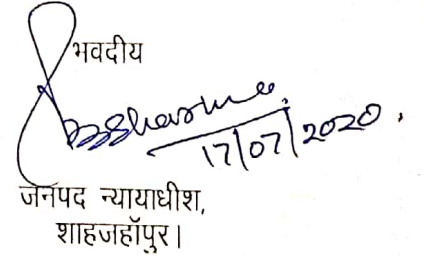 भवदीय
17/07/2020.
जनपद न्यायाधीश,
शाहजहॉपुर।